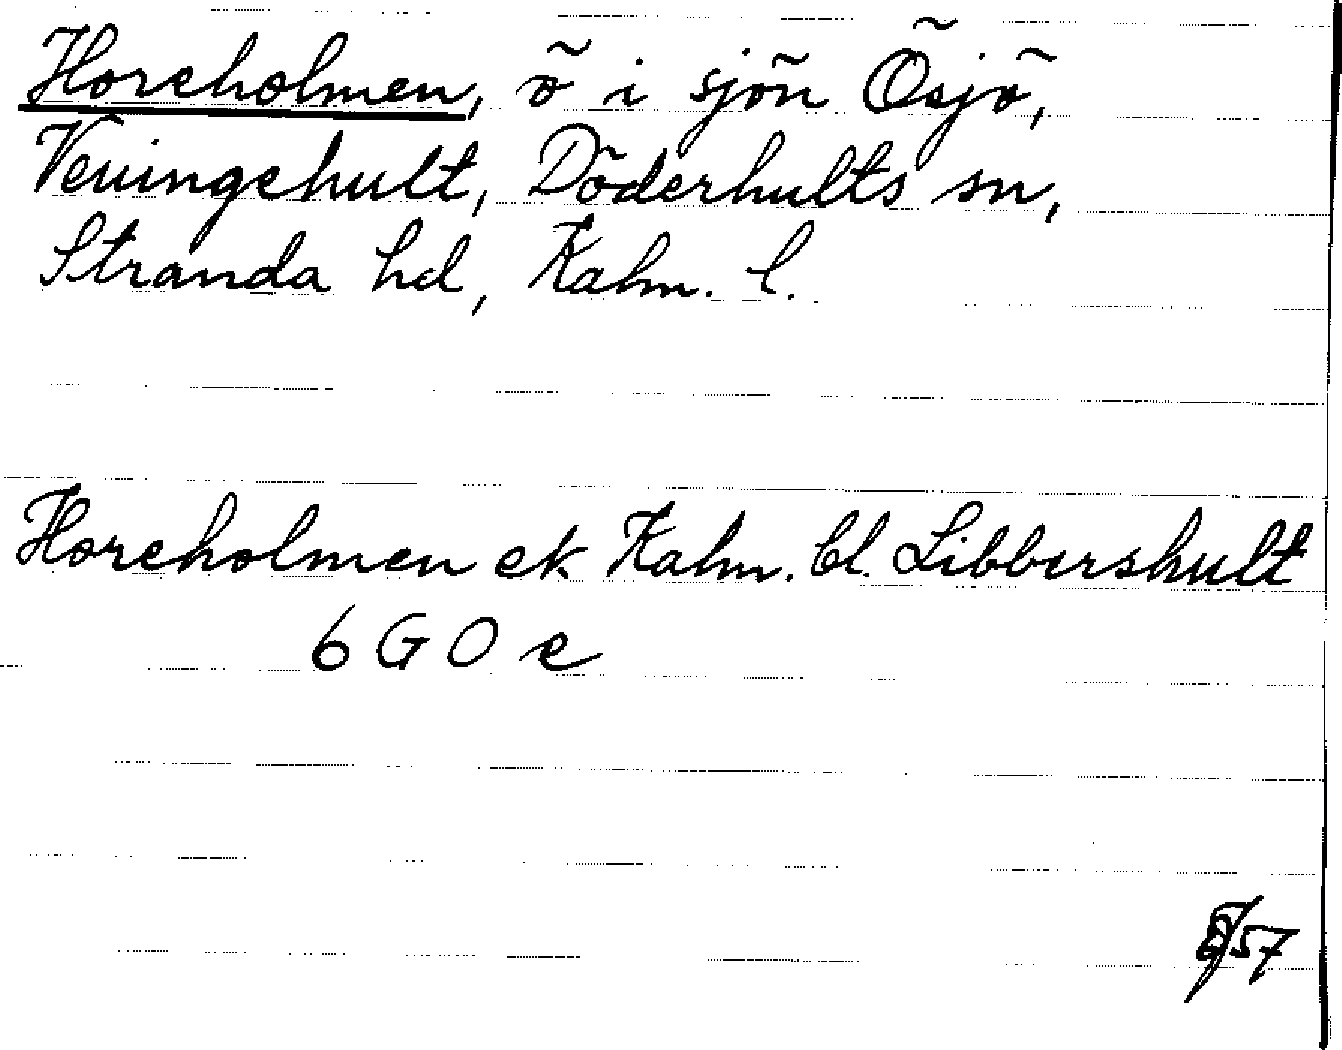 Horeholmen, ö i sjön Ösjö,
Veningehult, Döderhults sn,
Stranda hd, Kalm. l.
Horeholmen ek Kalm. bl. Libbershult
6 G O e
/57